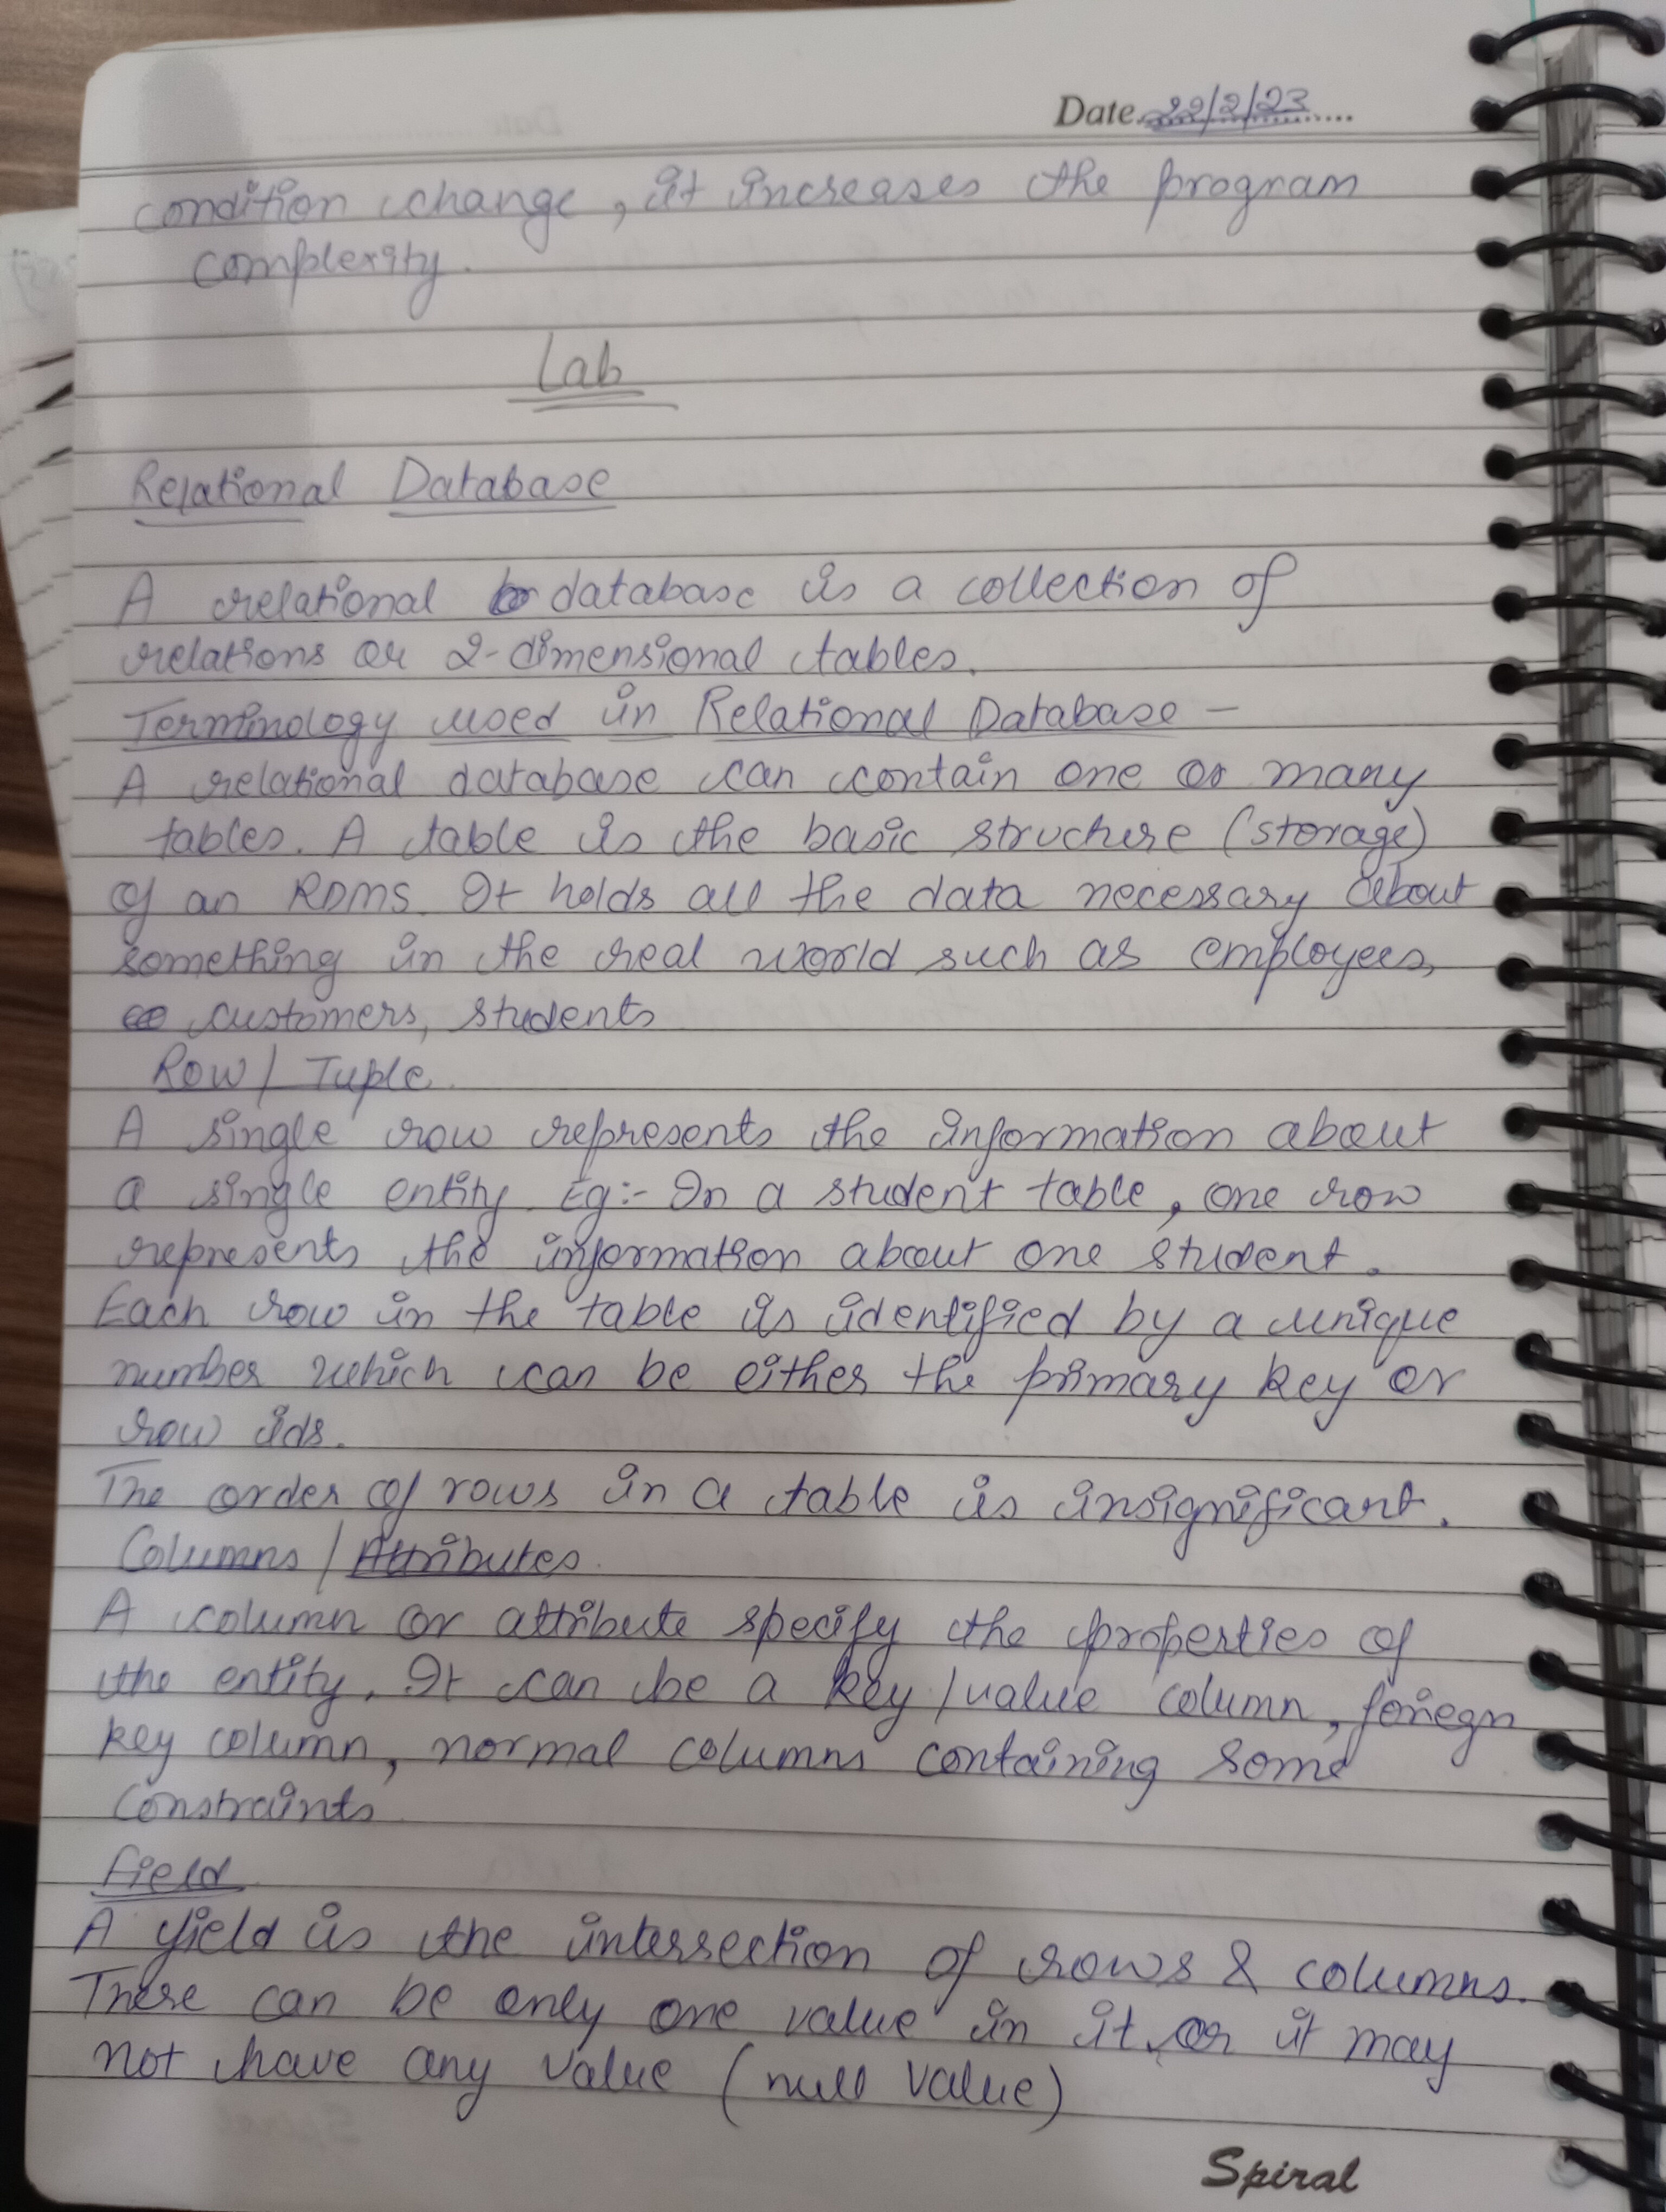 Date 22/2/23
condition change, it increases the program
complexity.
Lab
Relational Database
A relational database is a collection of
relations or 2-dimensional tables.
Terminology used in Relational Database -
A relational database can contain one or many
tables. A table is the basic structure (storage)
of an RDMS. It holds all the data necessary about
something in the real world such as employees,
customers, students
Row / Tuple
A single row represents the information about
a single entity. Eg:- In a student table, one row
represents the information about one student.
Each row in the table is identified by a unique
number which can be either the primary key or
row ids.
The order of rows in a table is insignificant.
Columns / Attributes.
A column or attribute specify the properties of
the entity. It can be a key / value column, foriegn
key column, normal columns containing some
constraints
Field
A field is the interrsection of rows & columns.
There can be only one value in it or it may
not have any value (null value)
Spiral